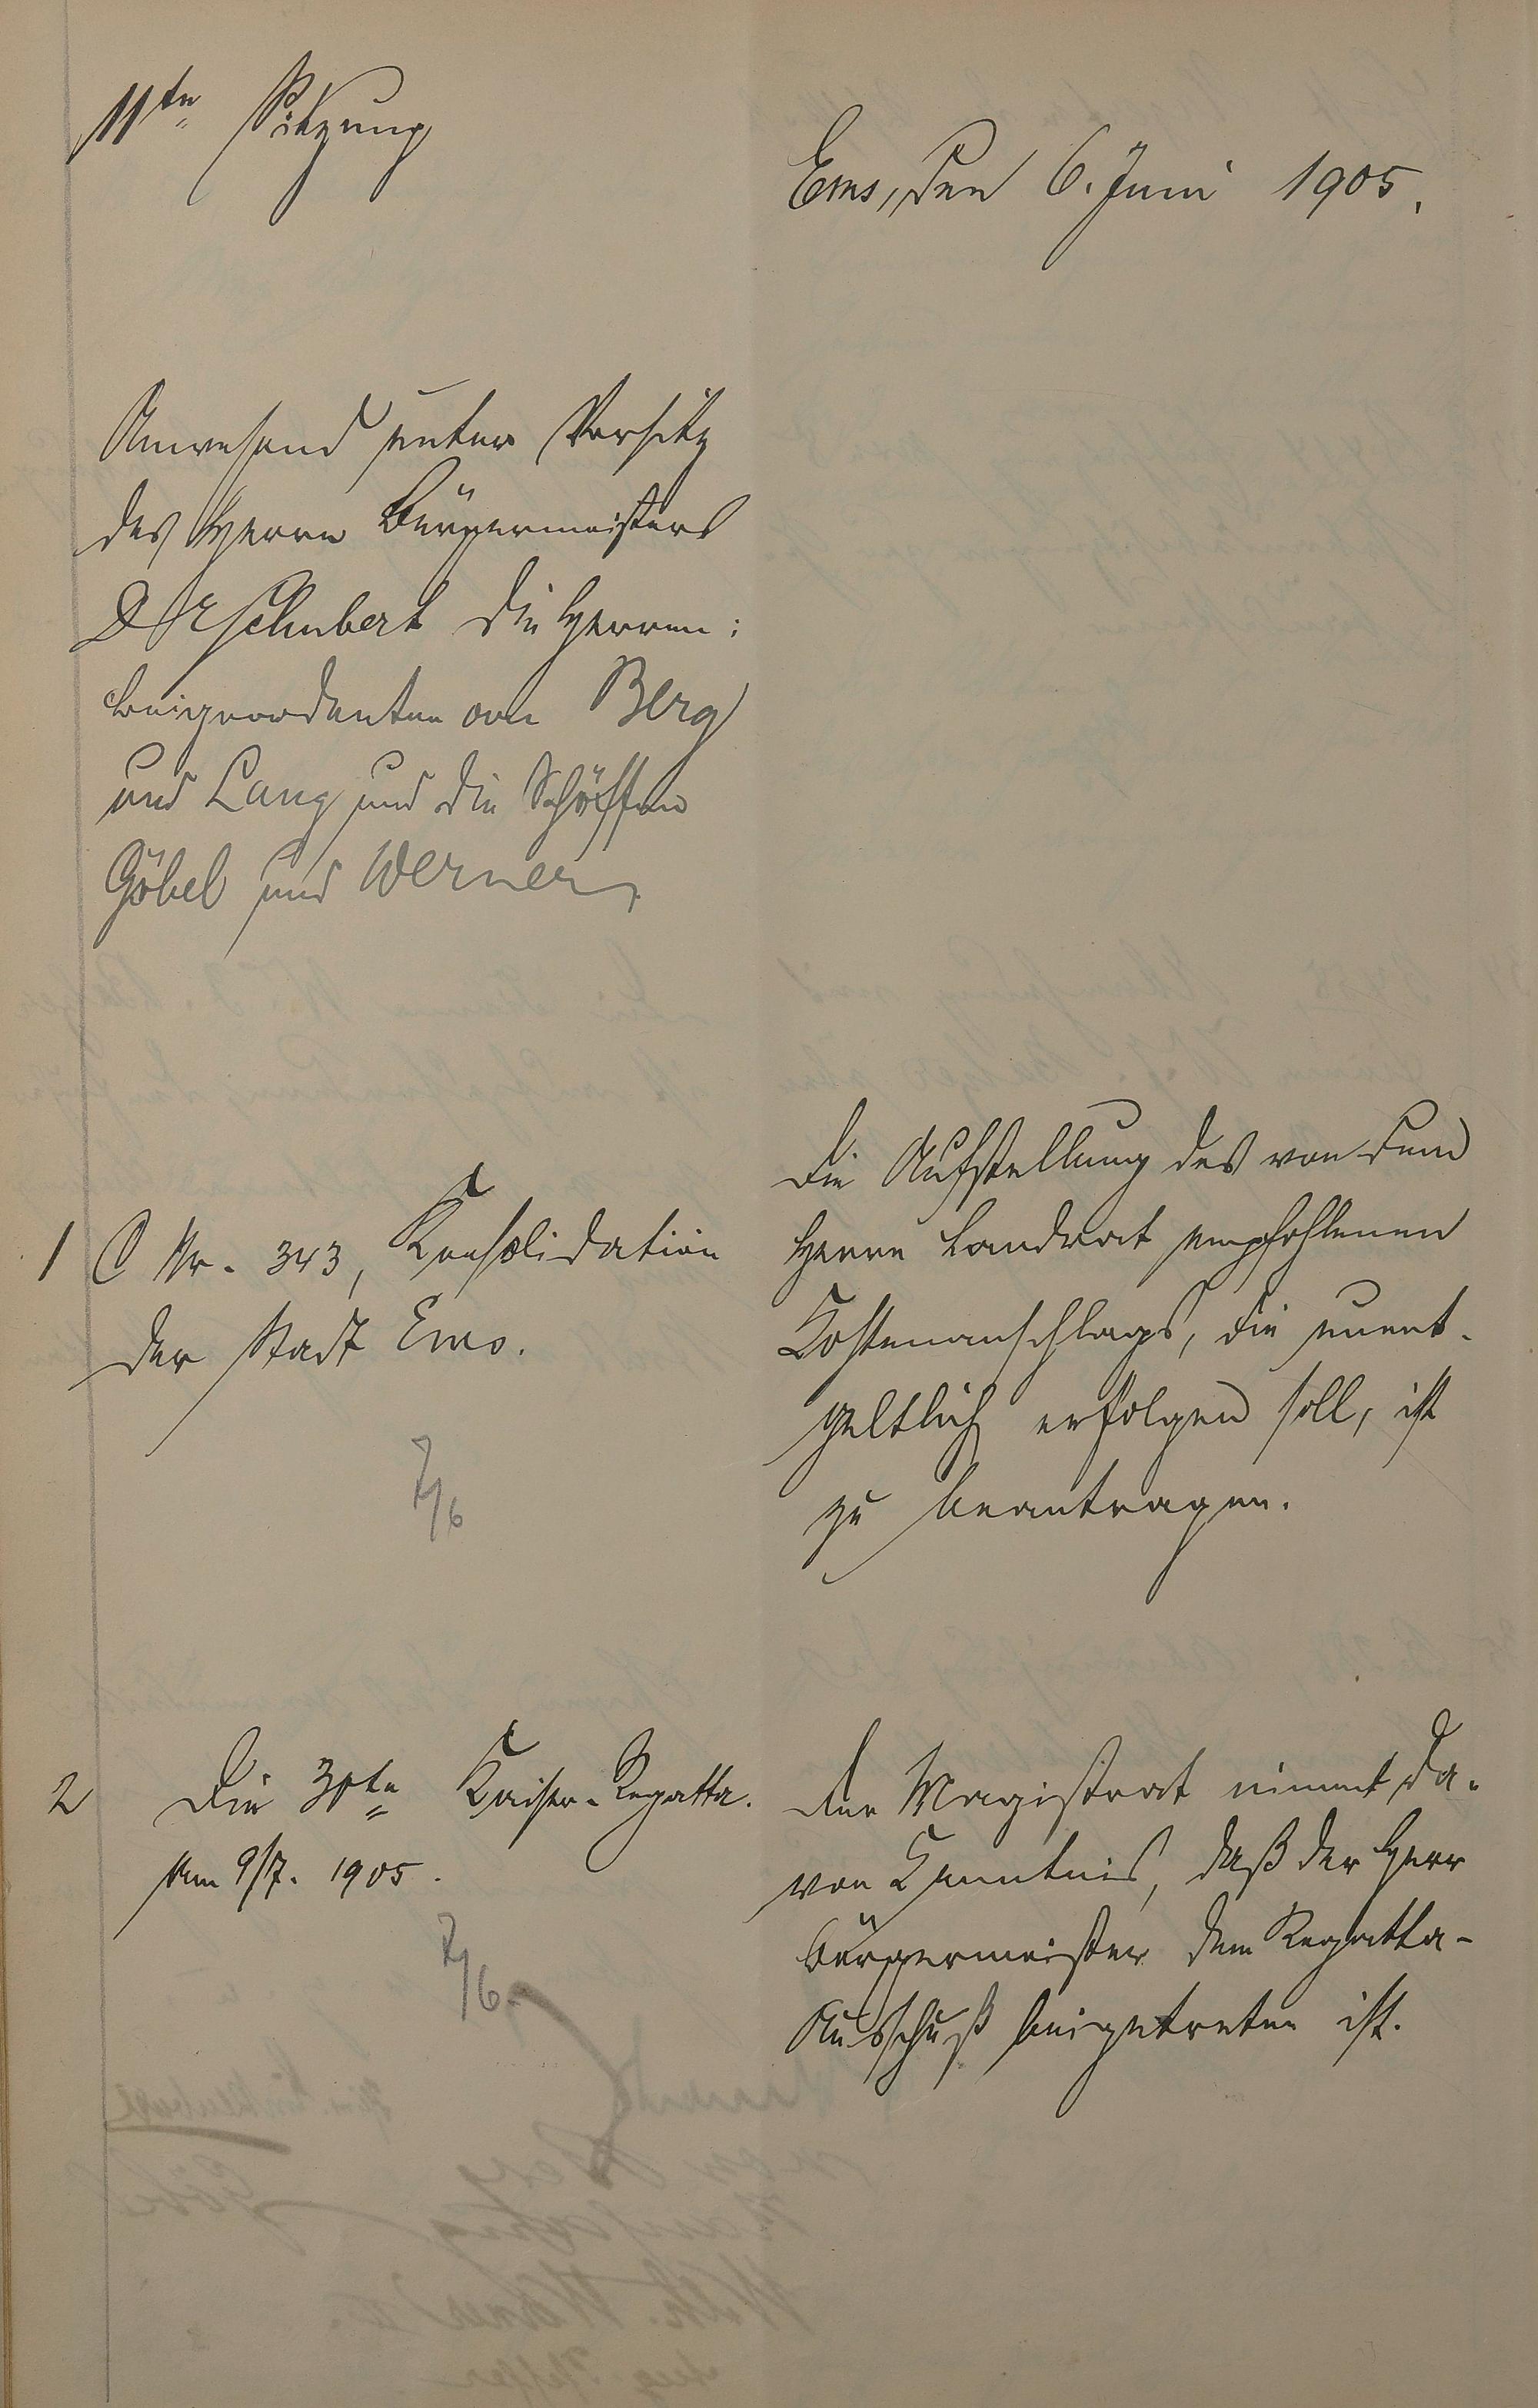 11te Sitzung
Ems, den 6. Juni 1905.
Anwesend unter Vorsitz
des Herrn Bürgermeisters
Dr Schubert die Herren:
Beigeordneten von Berg
und Lang und die Schöffen
Göbel und Werner.
1 C Nr. 343, Konsolidation
der Stadt Ems.
7/6
Die Aufstellung des von dem
Herrn Landrat empfohlenen
Kostenanschlags, die unent-
geltlich erfolgen soll, ist
zu beantragen.
2 Die 3te Kaiser-Regatta.
am 9/7. 1905.
7/6.
Der Magistrat nimmt da-
von Kenntnis, daß der Herr
Bürgermeister dem Regatta-
Ausschuß beigetreten ist.